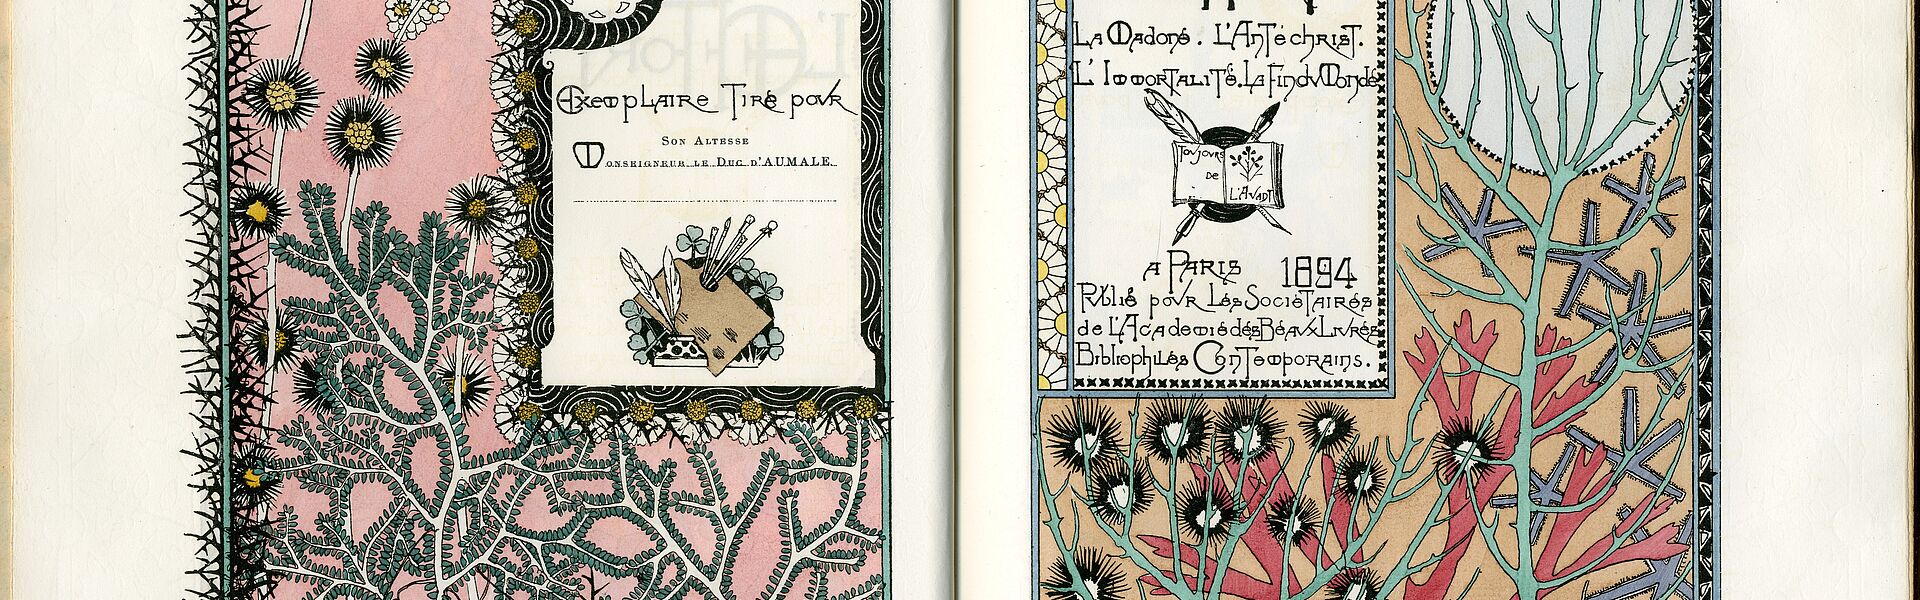 Exemplaire Tiré pour
Son Altesse
Monseigneur le Duc d'AUMALE.
La Madone. L'Antéchrist.
L'Immortalité. La Fin du Monde
Toujours
de
L'Avant
A Paris 1894
Publié pour Les Sociétairés
de L'Academie dés Béaux Livrés
Bibliophilés Contemporains.